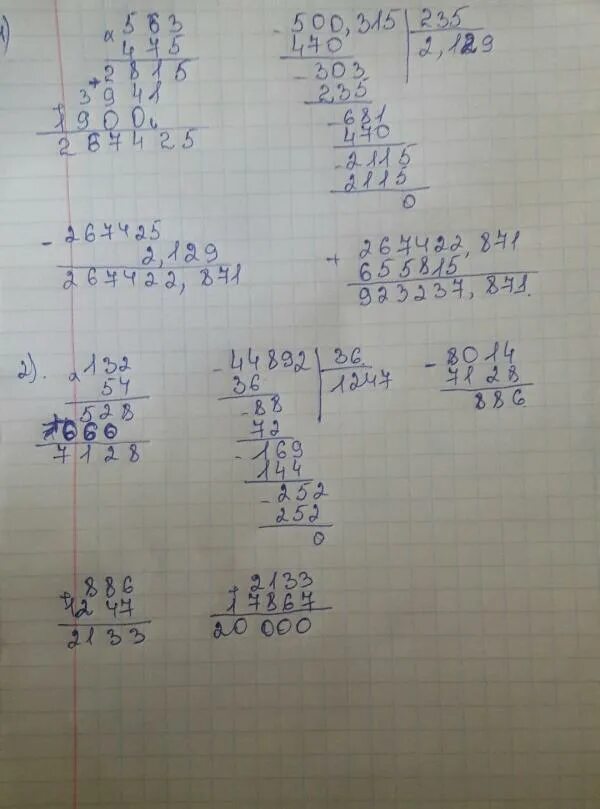 1)
× 563
475
+ 2815
3941
+ 1900
267425
- 500,315 | 235
470
2,129
- 303
235
- 681
470
- 2115
2115
0
- 267425
2,129
267422,871
+ 267422,871
655815
923237,871.
2).
× 132
54
528
+ 666
7128
- 44892 | 36
36
1247
- 88
72
- 169
144
- 252
252
0
- 8014
7128
886
+ 886
1247
2133
+ 2133
17867
20000